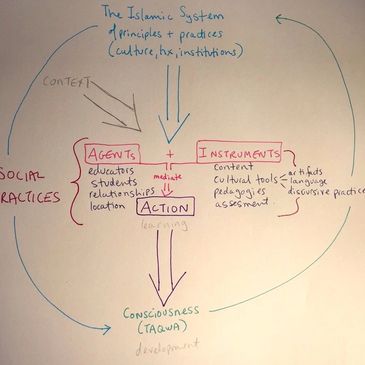 The Islamic System
of principles + practices
(culture, hx, institutions)
CONTEXT
SOCIAL
PRACTICES
AGENTS
educators
students
relationships
location
+
mediate
ACTION
learning
INSTRUMENTS
content
cultural tools
pedagogies
assesment
artifacts
language
discursive practice
CONSCIOUSNESS
(TAQWA)
development